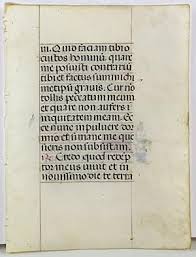 m. Quid faciam tibi o
custos hominum. quare
me posuisti contrarium
tibi et factus sum michi
metipsi gravis. Cur non
tollis peccatum meum
et quare non aufers i
niquitatem meam. Ec
ce nunc in pulvere dor
mio et si mane me que
sieris non subsistam.
Credo quod redemp
tor meus vivit et in
novissimo die de terra